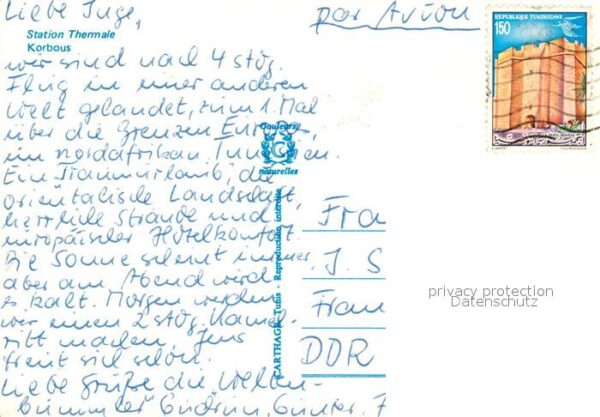 Liebe Inge,
par Avion
Station Thermale
Korbous
REPUBLIQUE TUNISIENNE
150
wir sind nach 4 stdg.
Flug in einer anderen
Welt gelandet, zum 1. Mal
über die Grenzen Europas,
im nordafrikan. Tunesien.
Ein Traumurlaub, die
orientalische Landschaft,
herrliche Strände und
europäischer Hotelkomfort.
Die Sonne scheint immer,
aber am Abend wird
es kalt. Morgen werden
wir einen 2 stdg. Kamel-
ritt machen, Jens
freut sich schon.
Liebe Grüße die Welten-
bummler Gudrun, Günter,
Couleurs
C
naturelles
CARTHAGE Tunis - Reproduction interdite
Frau
I. S
Fran
DDR
privacy protection
Datenschutz